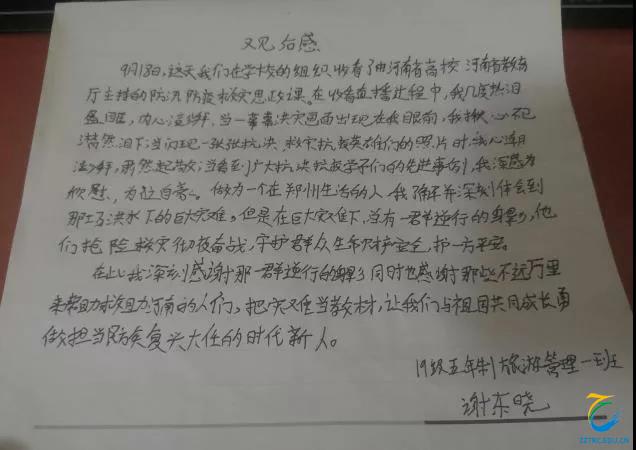 观后感
9月13日,这天我们在学校的组织收看了由河南省高校 河南省教育
厅主持的防汛防疫救灾思政课。在收看直播过程中,我几度热泪
盈眶,内心澎湃,当一幕幕决灾画面出现在我眼前,我揪心不已
潸然泪下;当们现一张张抗决、救灾抗疫英雄们的照片时,我心潮
澎湃,肃然起敬;当看到广大抗决抗疫学子们的先进事例,我深感为
欣慰、为位自豪。做为一个在郑州生活的人,我了解并深刻体会到
那场洪水下的巨大灾难。但是在巨大灾难下,总有一群逆行的身影,他
们抢险救灾彻夜奋战,守护群众生命财产安全,护一方平安。
在此我深刻感谢那一群逆行的身影,同时也感谢那些不远万里
来帮助救助河南的人们,把灾难当教材,让我们与祖国共同成长勇
做担当民族复兴大任的时代新人。
19级五年制旅游管理一班
谢东晓
ZZTRC.EDU.CN